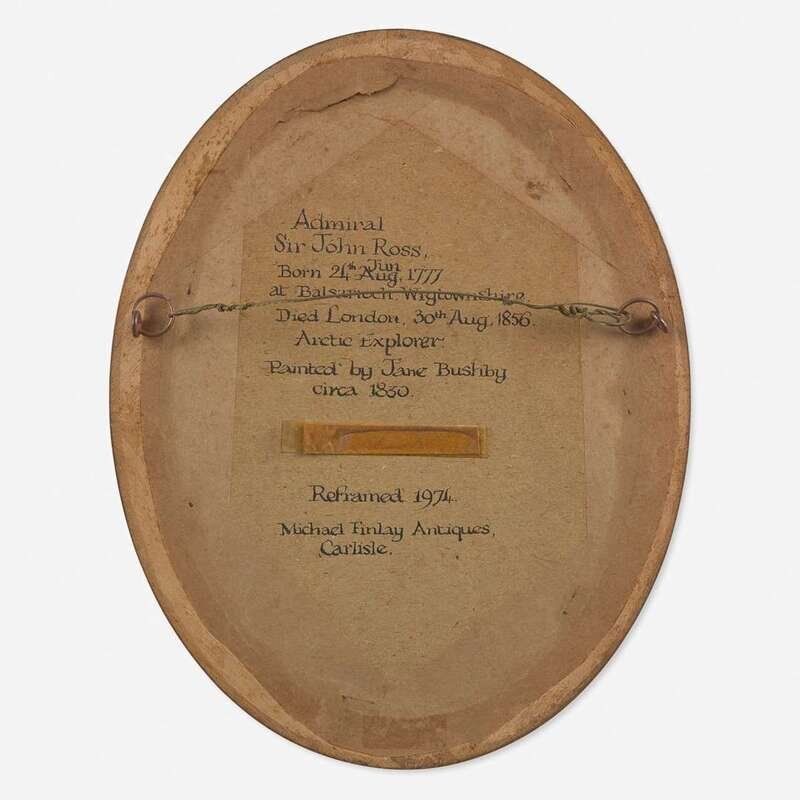 Admiral
Sir John Ross,
Born 24th Jun Aug, 1777
at Balsarroch, Wigtownshire.
Died London, 30th Aug, 1856.
Arctic Explorer
Painted by Jane Bushby
circa 1830.
Reframed 1974.
Michael Finlay Antiques,
Carlisle.